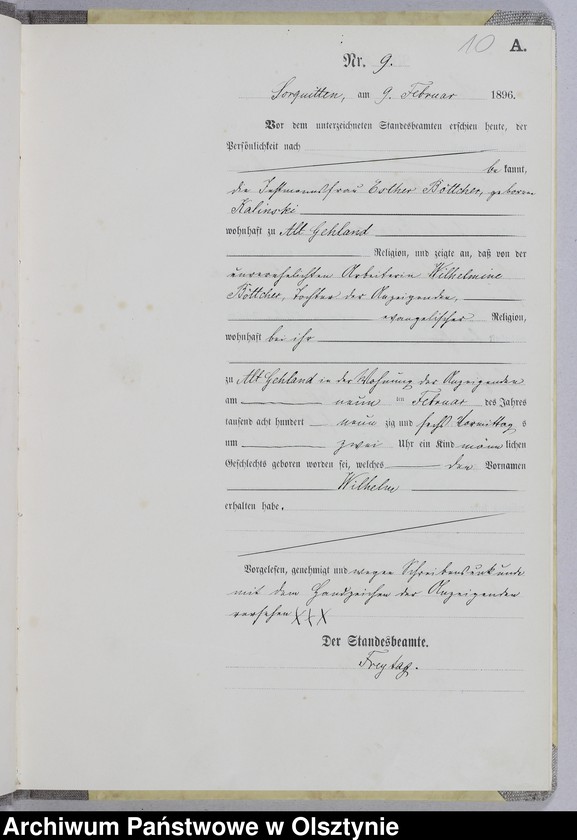 10 A.
Nr. 9.
Sorquitten, am 9. Februar 1896.
Vor dem unterzeichneten Standesbeamten erschien heute, der
Persönlichkeit nach
be kannt,
die Instmannsfrau Esther Böttcher, geborene
Kalinski
wohnhaft zu Alt Gehland
Religion, und zeigte an, daß von der
unverehelichten Arbeiterin Wilhelmine
Böttcher, Tochter der Anzeigenden,
evangelischer Religion,
wohnhaft bei ihr
zu Alt Gehland in der Wohnung der Anzeigenden
am neun ten Februar des Jahres
tausend acht hundert neun zig und sechs Vormittag s
um zwei Uhr ein Kind männ lichen
Geschlechts geboren worden sei, welches den Vornamen
Wilhelm
erhalten habe.
Vorgelesen, genehmigt und wegen Schreibensunkunde
mit dem Handzeichen der Anzeigenden
versehen XXX
Der Standesbeamte.
Freytag.
Archiwum Państwowe w Olsztynie